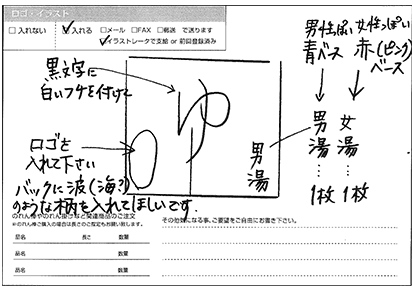 ロゴ・イラスト
□入れない ☑入れる □メール □FAX □郵送 で送ります
☑イラストレータで支給 or 前回登録済み
黒文字に
白いフチを付けて
ゆ
男湯
ロゴを
入れて下さい
バックに波(海?)
のような柄を入れてほしいです。
男性っぽい
青ベース
↓
男湯
⋮
1枚
女性っぽい
赤(ピンク)
ベース
↓
女湯
⋮
1枚
のれん棒やのれん掛けなど関連商品のご注文
※のれん棒ご購入の場合は長さのご指定もお願い致します。
品名 長さ 数量
品名 数量
品名 数量
その他気になる事、ご要望をご自由にお書き下さい。